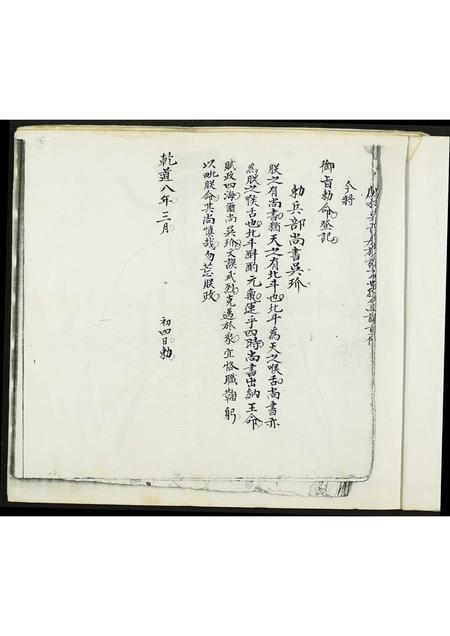 今將
御旨勅命登記
勅兵部尚書吳玠
朕之有尚書猶天之有北斗也北斗為天之喉舌尚書亦
為朕之喉舌也北斗斟酌元氣運乎四時尚書出納王命
賦政四海爾尚吳玠文謨武烈克邁於眾宜恪職鞠躬
以毗朕命其尚慎哉勿荒朕政
乾道八年三月 初四日勅